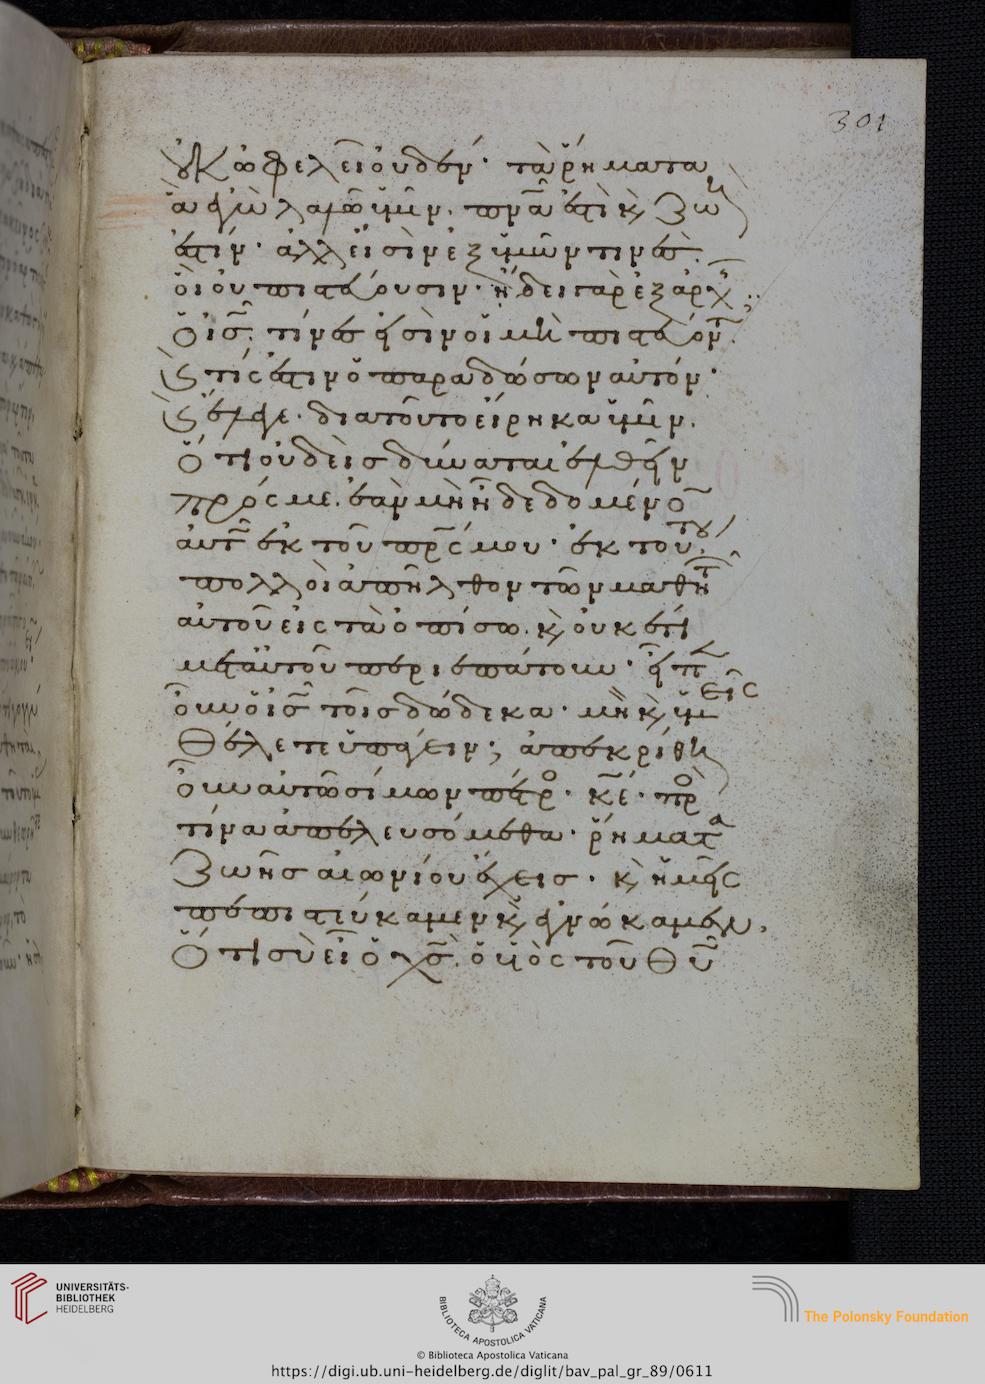 301
οὐκ ὠφελεῖ οὐδέν· τὰ ῥήματα
ἃ ἐγὼ λαλῶ ὑμῖν. πνᾶ ἐστι κ, ζωή
ἐστιν· ἀλλ' εἰσὶν ἐξ ὑμῶν τινὲς
οἳ οὐ πιστεύουσιν· ἤδει γὰρ ἐξ ἀρχ
ὁ ισ. τίνες εἰσὶν οἱ μὴ πιστεύοντ
κ, τίς ἐστιν ὁ παραδώσων αὐτόν·
κ, ἔλεγε· διατοῦτο εἴρηκα ὑμῖν.
ὅτι οὐδεὶς δύναται ἐλθεῖν
πρός με. ἐὰν μὴ ἦ δεδομένον
αὐτ ἐκ τοῦ πρς μου· ἐκ τούτου
πολλοὶ ἀπῆλθον τῶν μαθητ
αὐτοῦ εἰς τὰ ὀπίσω. κ, οὐκ ἔτι
μετ' αὐτοῦ περιεπάτουν· εἶπ
οὖν ὁ ισ τοῖς δώδεκα· μὴ κ, ὑμεῖς
θέλετε ὑπάγειν; ἀπεκρίθη
οὖν αὐτῶ σίμων πέτρο· κε· πρ
τίνα ἀπελευσόμεθα· ῥήματα
ζωῆς αἰωνίου ἔχεις· κ, ἡμεῖς
πεπιστεύκαμεν κ, ἐγνώκαμεν,
ὅτι σὺ εἶ ὁ χσ. ὁ υἱὸς τοῦ θυ
UNIVERSITÄTS-
BIBLIOTHEK
HEIDELBERG
BIBLIOTECA APOSTOLICA VATICANA
The Polonsky Foundation
© Biblioteca Apostolica Vaticana
https://digi.ub.uni-heidelberg.de/diglit/bav_pal_gr_89/0611